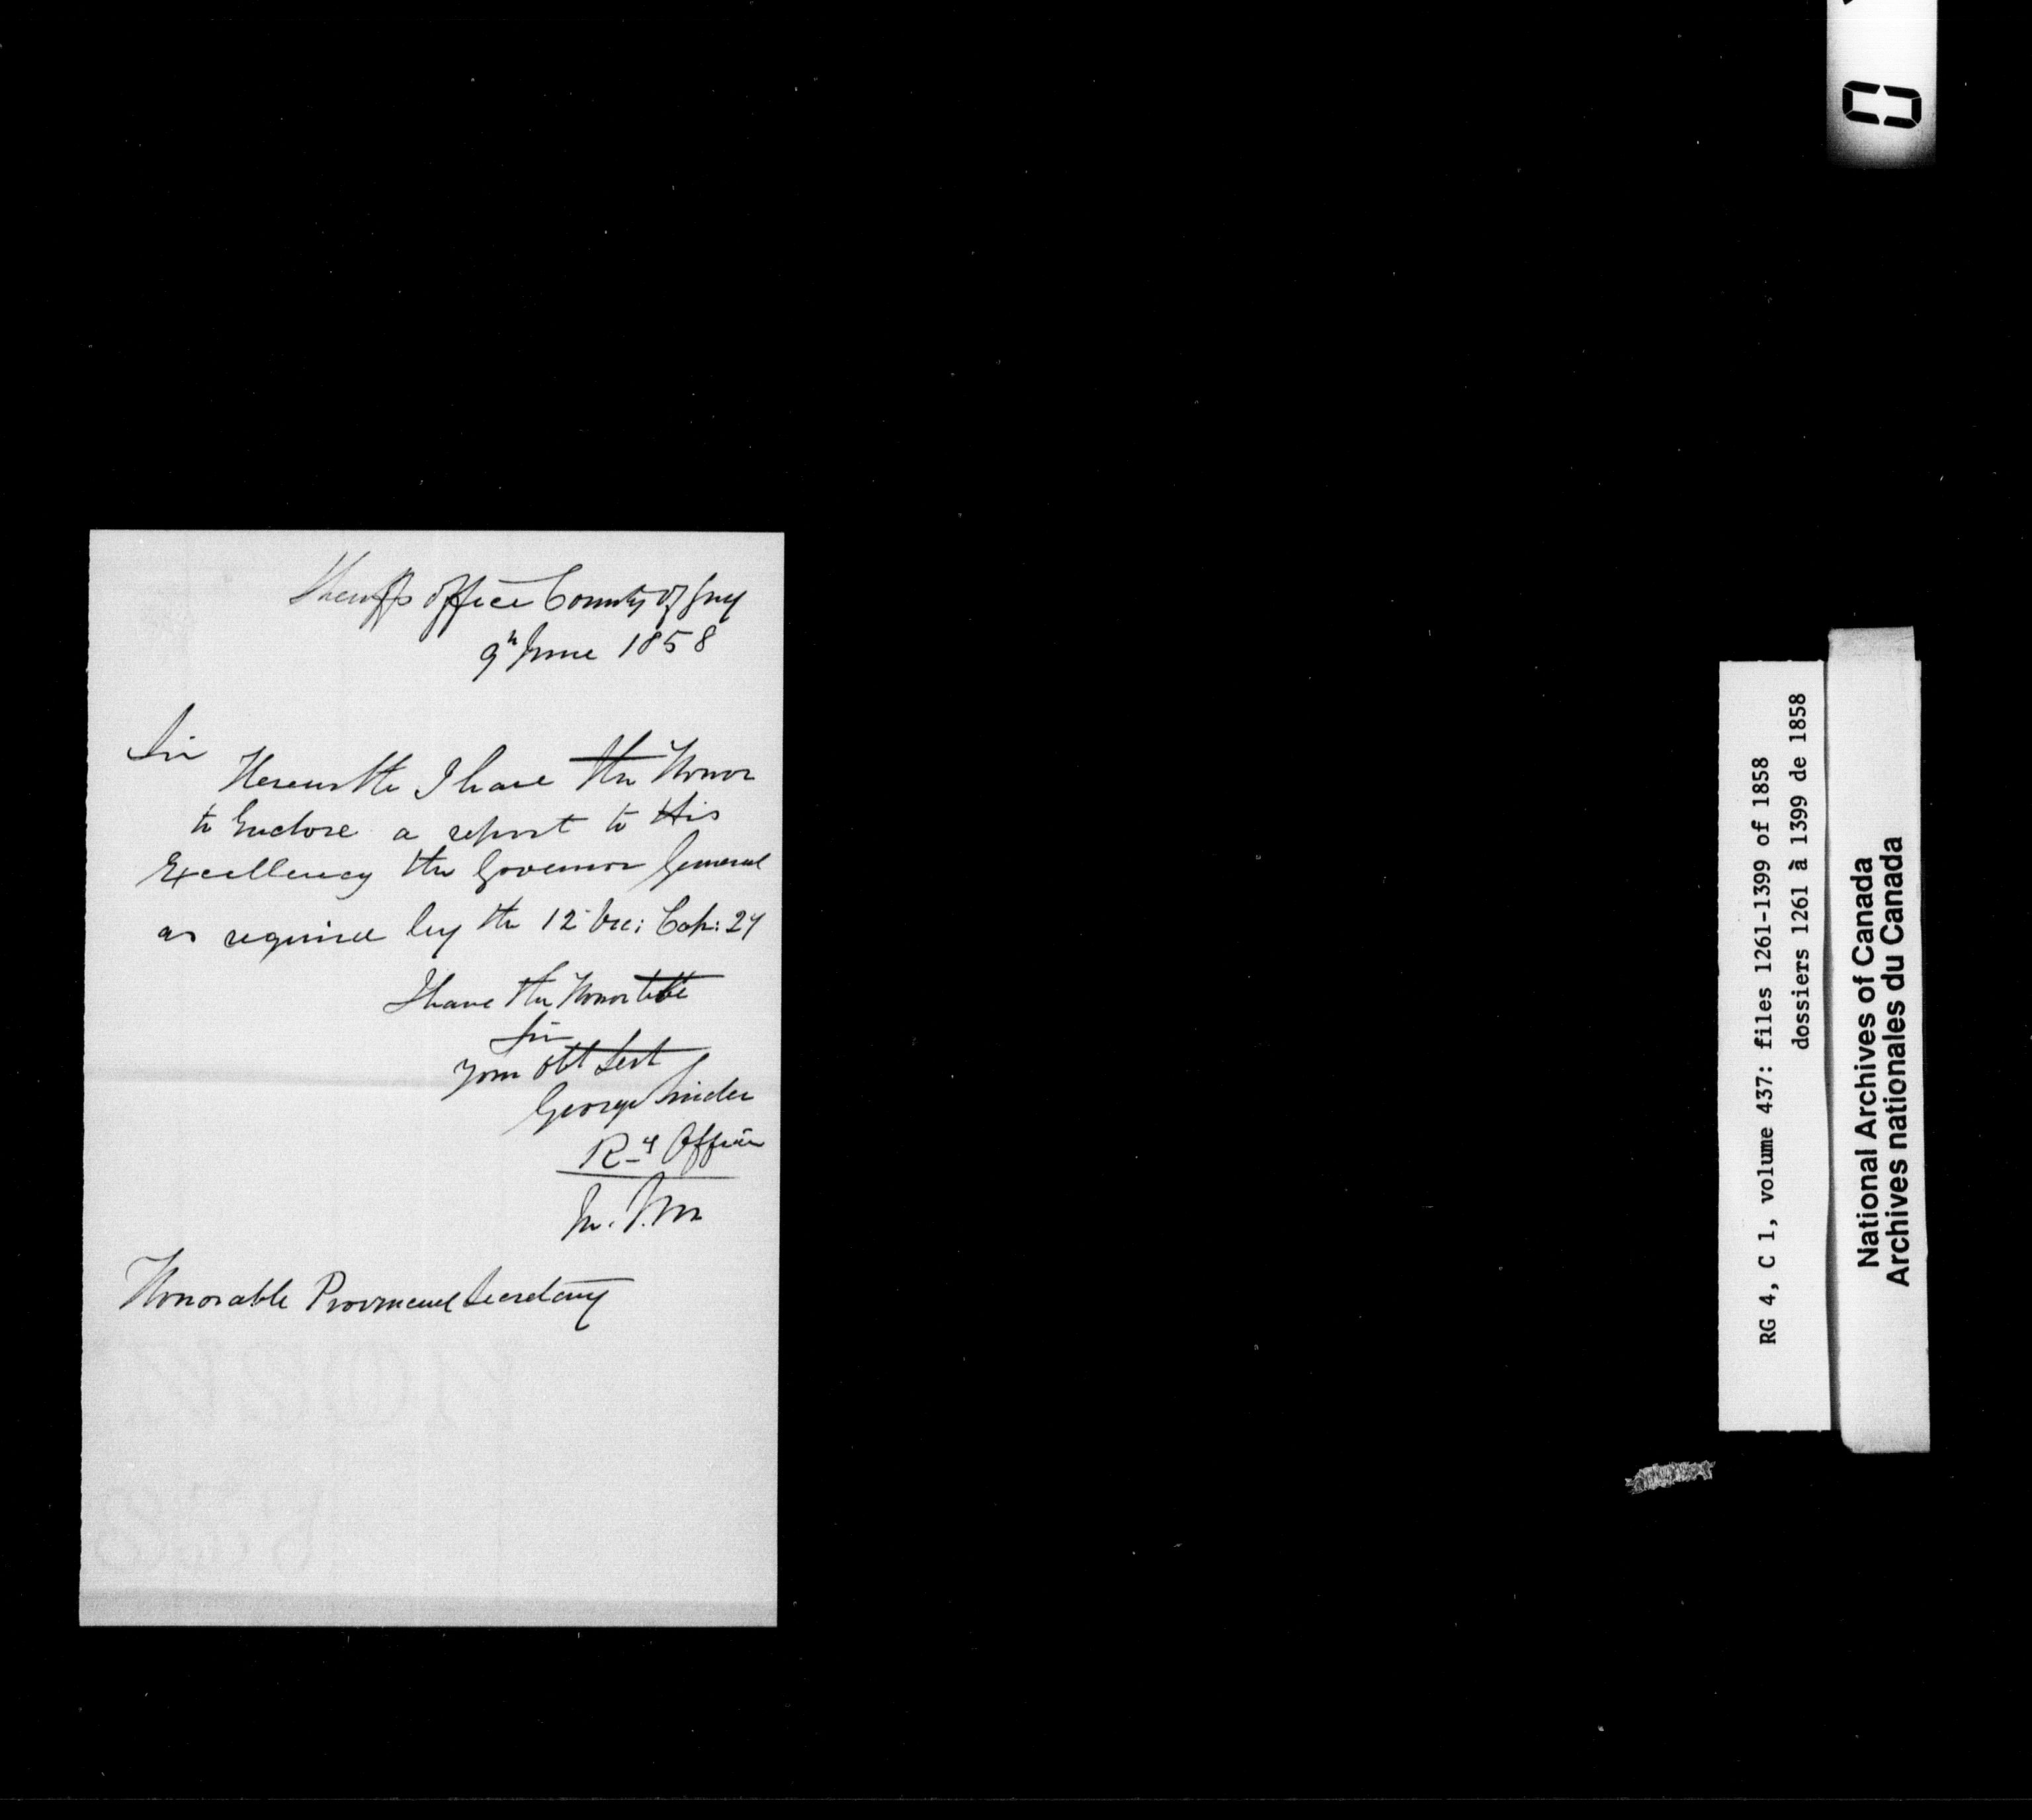 Sheriffs Office County of Grey
9th June 1858
Sir
Herewith I have the Honor
to Enclose a report to His
Excellency the Governor General
as required by the 12 Vic: Cap: 27
I have the Honor to be
Sir
your obt Servt
George Snider
R-g Officer
Honorable Provincial Secretary
RG 4, C 1, volume 437: files 1261-1399 of 1858
dossiers 1261 à 1399 de 1858
National Archives of Canada
Archives nationales du Canada
0